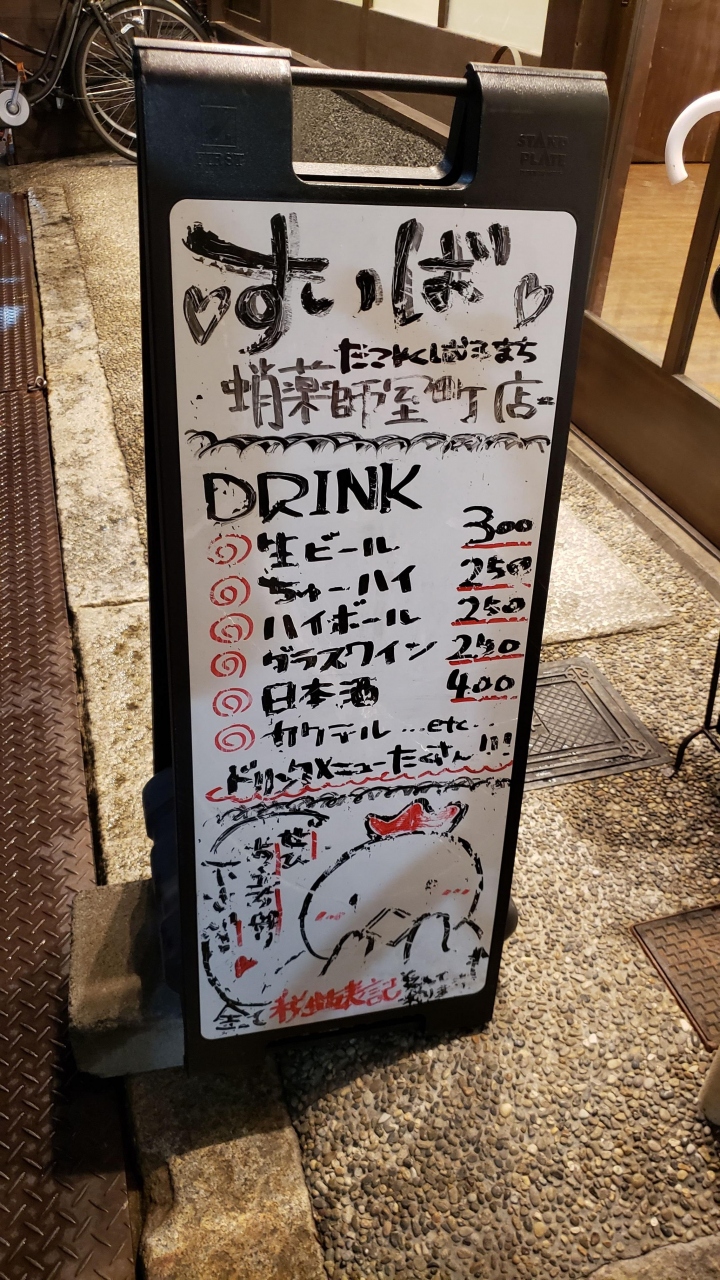 STAND
PLATE
すいば
たこやくしむろまち
蛸薬師室町店
DRINK
生ビール 300
ちゅーハイ 250
ハイボール 250
グラスワイン 250
日本酒 400
カクテル …etc…
ドリンクメニューたくさん!!!
全て税抜表記